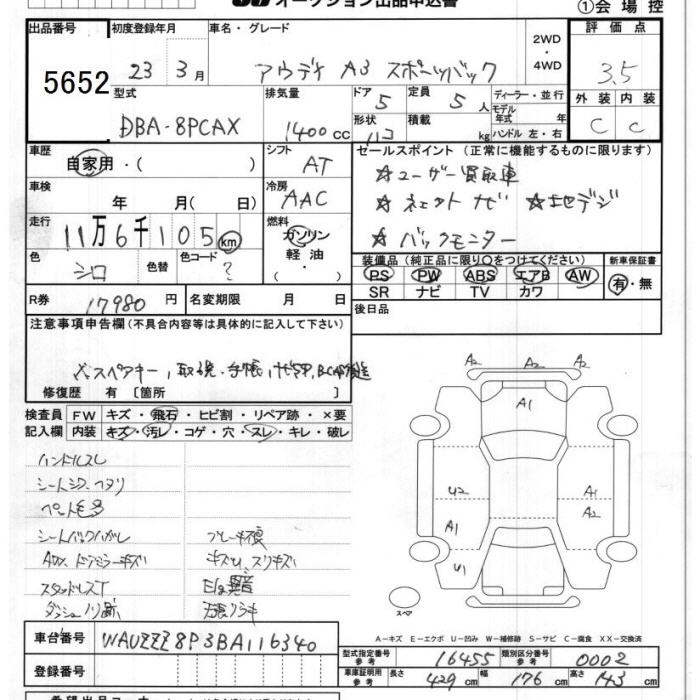 オークション出品申込書 ①会場控
出品番号 初度登録年月 車名・グレード 評価点
5652 23 3月 アウディ A3 スポーツバック 2WD・4WD 3.5
型式 排気量 ドア 定員 ディーラー・並行 外装 内装
DBA-8PCAX 1400cc 5 5人 モデル年式 年 C C
形状 積載 kg ハンドル 左・右
車歴 シフト セールスポイント（正常に機能するものに限ります）
自家用・( ) AT ☆ユーザー買取車
車検 冷房
年 月( 日) AAC ☆
走行 燃料
11万6千105 km ガソリン ☆バックモニター
色 色替 色コード 軽油・
シロ ? 装備品（純正品に限り○をつけてください） 新車保証書
PS PW ABS エアB AW 有・無
SR ナビ TV カワ
R券 17980円 名変期限 月 日 後日品
注意事項申告欄（不具合内容等は具体的に記入して下さい）
スペアキー, 取説, 手帳,
修復歴 有 〔箇所 〕
検査員 FW キズ・飛石・ヒビ割・リペア跡・×要
記入欄 内装 キズ・汚レ・コゲ・穴・スレ・キレ・破レ
A2 A2 A2
A1
ハンドルスレ
シートシワ・ヘタリ
U2 A1
ペット毛多 A2
シートバックハガレ A1
キズU, スリキズ U1
スタッドレスT E/g異音
スペア
A-キズ E-エクボ U-凹み W-補修跡 S-サビ C-腐食 XX-交換済
車台番号 WAUZZZ8P3BA116340
型式指定番号 参考 16455 類別区分番号 参考 0002
登録番号 車庫証明用 参考 長さ 429cm 幅 176cm 高さ 143cm